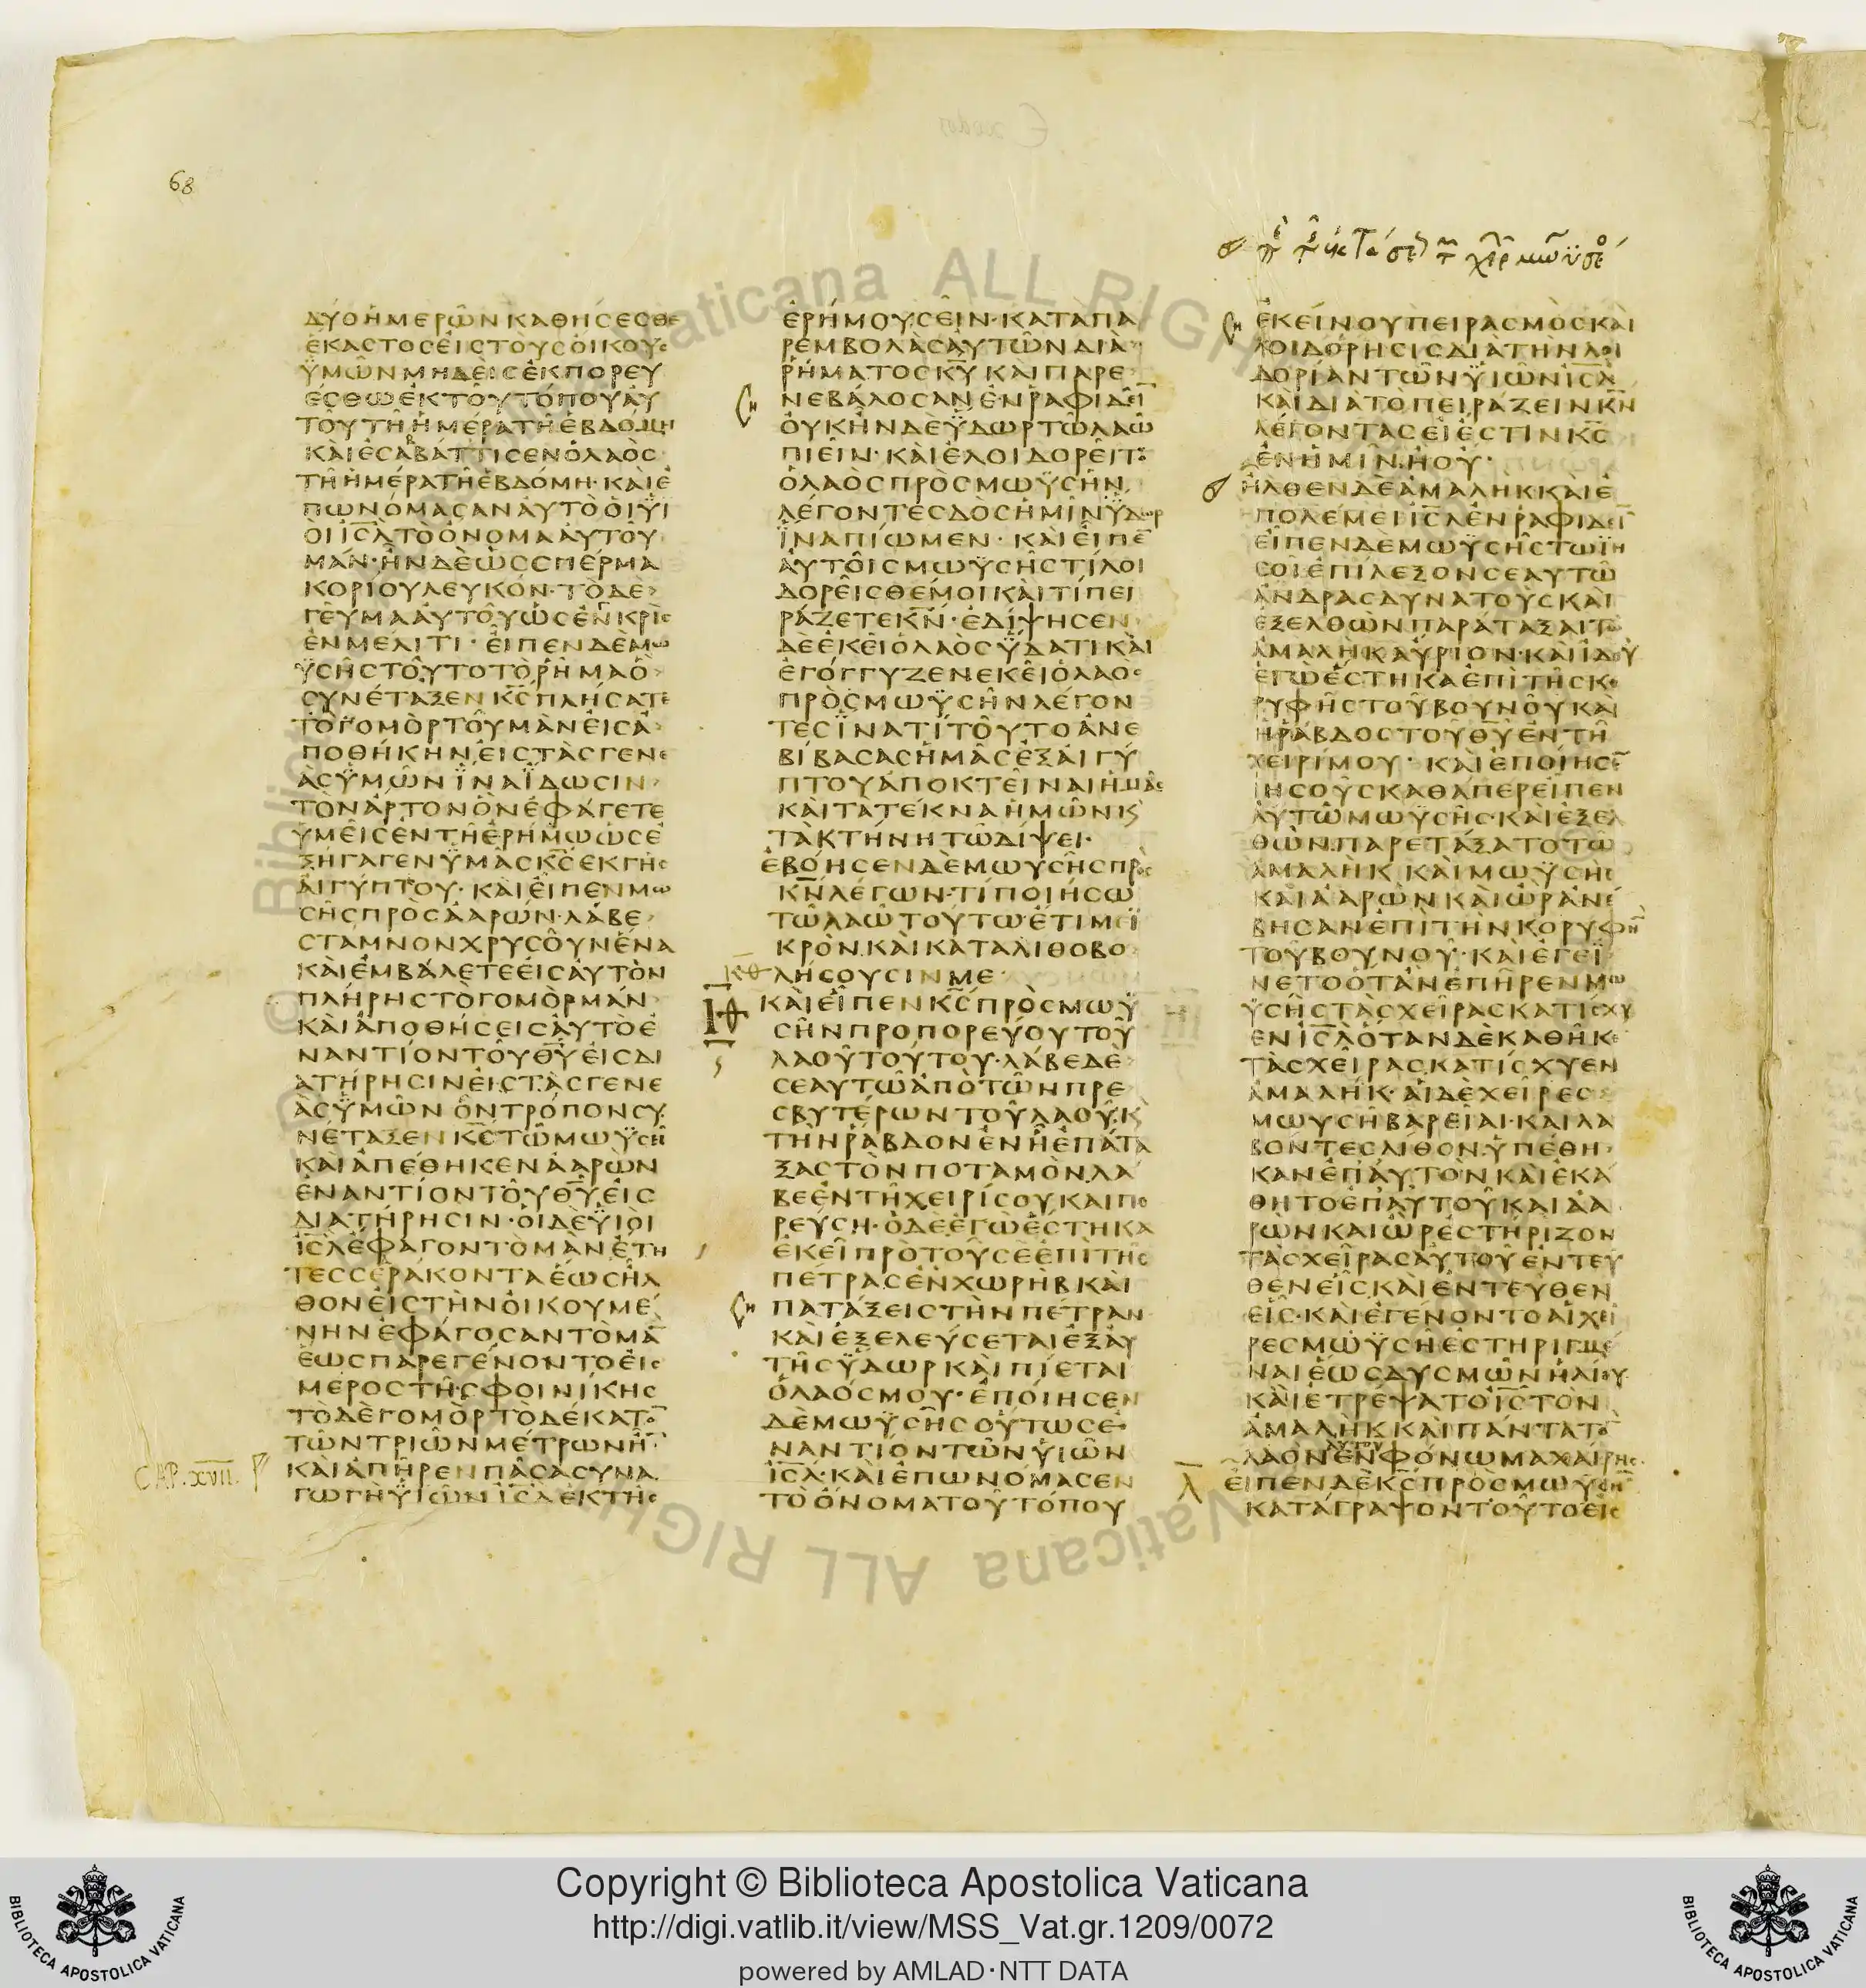 68
ΔΥΟΗΜΕΡΩΝΚΑΘΗΣΕΣΘΕ
ΕΚΑΣΤΟΣΕΙΣΤΟΥΣΟΙΚΟΥΣ
ΫΜΩΝΜΗΔΕΙΣΕΚΠΟΡΕΥ
ΕΣΘΩΕΚΤΟΥΤΟΠΟΥΑΥ
ΤΟΥΤΗΗΜΕΡΑΤΗΕΒΔΟΜΗ
ΚΑΙΕΣΑΒΒΑΤΙΣΕΝΟΛΑΟΣ
ΤΗΗΜΕΡΑΤΗΕΒΔΟΜΗ·ΚΑΙΕ
ΠΩΝΟΜΑΣΑΝΑΥΤΟΟΙΫΙ
ΟΙΙΣΛΤΟΟΝΟΜΑΑΥΤΟΥ
ΜΑΝ·ΗΝΔΕΩΣΣΠΕΡΜΑ
ΚΟΡΙΟΥΛΕΥΚΟΝ·ΤΟΔΕ
ΓΕΥΜΑΑΥΤΟΥΩΣΕΝΚΡΙΣ
ΕΝΜΕΛΙΤΙ·ΕΙΠΕΝΔΕΜΩ
ΫΣΗΣΤΟΥΤΟΤΟΡΗΜΑΟ
ΣΥΝΕΤΑΞΕΝΚΣΠΛΗΣΑΤΕ
ΤΟΓΟΜΟΡΤΟΥΜΑΝΕΙΣΑ
ΠΟΘΗΚΗΝΕΙΣΤΑΣΓΕΝΕ
ΑΣΫΜΩΝΪΝΑΪΔΩΣΙΝ
ΤΟΝΑΡΤΟΝΟΝΕΦΑΓΕΤΕ
ΥΜΕΙΣΕΝΤΗΕΡΗΜΩΩΣΕ
ΞΗΓΑΓΕΝΫΜΑΣΚΣΕΚΓΗΣ
ΑΙΓΥΠΤΟΥ·ΚΑΙΕΙΠΕΝΜΩ
ΣΗΣΠΡΟΣΑΑΡΩΝ·ΛΑΒΕ
ΣΤΑΜΝΟΝΧΡΥΣΟΥΝΕΝΑ
ΚΑΙΕΜΒΑΛΕΤΕΕΙΣΑΥΤΟΝ
ΠΛΗΡΗΣΤΟΓΟΜΟΡΜΑΝ
ΚΑΙΑΠΟΘΗΣΕΙΣΑΥΤΟΕ
ΝΑΝΤΙΟΝΤΟΥΘΥΕΙΣΔΙ
ΑΤΗΡΗΣΙΝΕΙΣΤΑΣΓΕΝΕ
ΑΣΫΜΩΝΟΝΤΡΟΠΟΝΣΥ
ΝΕΤΑΞΕΝΚΣΤΩΜΩΫΣΗ
ΚΑΙΑΠΕΘΗΚΕΝΑΑΡΩΝ
ΕΝΑΝΤΙΟΝΤΟΥΘΥΕΙΣ
ΔΙΑΤΗΡΗΣΙΝ·ΟΙΔΕΫΙΟΙ
ΙΣΛΕΦΑΓΟΝΤΟΜΑΝΕΤΗ
ΤΕΣΣΕΡΑΚΟΝΤΑΕΩΣΗΛ
ΘΟΝΕΙΣΤΗΝΟΙΚΟΥΜΕ
ΝΗΝΕΦΑΓΟΣΑΝΤΟΜΑ
ΕΩΣΠΑΡΕΓΕΝΟΝΤΟΕΙΣ
ΜΕΡΟΣΤΗΣΦΟΙΝΙΚΗΣ
ΤΟΔΕΓΟΜΟΡΤΟΔΕΚΑΤΟ
ΤΩΝΤΡΙΩΝΜΕΤΡΩΝΗ
CAP. XVII.
ΚΑΙΑΠΗΡΕΝΠΑΣΑΣΥΝΑ
ΓΩΓΗΫΙΩΝΙΣΛΕΚΤΗΣ
ΕΡΗΜΟΥΣΕΙΝ·ΚΑΤΑΠΑ
ΡΕΜΒΟΛΑΣΑΥΤΩΝΔΙΑ
ΡΗΜΑΤΟΣΚΥΚΑΙΠΑΡΕ
ΝΕΒΑΛΟΣΑΝΕΝΡΑΦΙΔΕΙ
ΟΥΚΗΝΔΕΫΔΩΡΤΩΛΑΩ
ΠΙΕΙΝ·ΚΑΙΕΛΟΙΔΟΡΕΙΤΟ
ΟΛΑΟΣΠΡΟΣΜΩΫΣΗΝ
ΛΕΓΟΝΤΕΣΔΟΣΗΜΙΝΫΔΩΡ
ΪΝΑΠΙΩΜΕΝ·ΚΑΙΕΙΠΕ
ΑΥΤΟΙΣΜΩΫΣΗΣΤΙΛΟΙ
ΔΟΡΕΙΣΘΕΜΟΙΚΑΙΤΙΠΕΙ
ΡΑΖΕΤΕΚΝ·ΕΔΙΨΗΣΕΝ
ΔΕΕΚΕΙΟΛΑΟΣΫΔΑΤΙΚΑΙ
ΕΓΟΓΓΥΖΕΝΕΚΕΙΟΛΑΟΣ
ΠΡΟΣΜΩΫΣΗΝΛΕΓΟΝ
ΤΕΣΪΝΑΤΙΤΟΥΤΟΑΝΕ
ΒΙΒΑΣΑΣΗΜΑΣΕΞΑΙΓΥ
ΠΤΟΥΑΠΟΚΤΕΙΝΑΙΗΜΑΣ
ΚΑΙΤΑΤΕΚΝΑΗΜΩΝΚ
ΤΑΚΤΗΝΗΤΩΔΙΨΕΙ·
ΕΒΟΗΣΕΝΔΕΜΩΥΣΗΣΠΡΟΣ
ΚΝΛΕΓΩΝ·ΤΙΠΟΙΗΣΩ
ΤΩΛΑΩΤΟΥΤΩ·ΕΤΙΜΕΙ
ΚΡΟΝΚΑΙΚΑΤΑΛΙΘΟΒΟ
ΚΘ ΛΗΣΟΥΣΙΝΜΕ
ΚΑΙΕΙΠΕΝΚΣΠΡΟΣΜΩΫ
ΣΗΝΠΡΟΠΟΡΕΥΟΥΤΟΥ
ΛΑΟΥΤΟΥΤΟΥ·ΛΑΒΕΔΕ
ΣΕΑΥΤΩΑΠΟΤΩΝΠΡΕ
ΣΒΥΤΕΡΩΝΤΟΥΛΑΟΥ·Κ
ΤΗΝΡΑΒΔΟΝΕΝΗΕΠΑΤΑ
ΞΑΣΤΟΝΠΟΤΑΜΟΝΛΑ
ΒΕΕΝΤΗΧΕΙΡΙΣΟΥΚΑΙΠΟ
ΡΕΥΣΗ·ΟΔΕΕΓΩΕΣΤΗΚΑ
ΕΚΕΙΠΡΟΤΟΥΣΕΕΠΙΤΗΣ
ΠΕΤΡΑΣΕΝΧΩΡΗΒΚΑΙ
ΠΑΤΑΞΕΙΣΤΗΝΠΕΤΡΑΝ
ΚΑΙΕΞΕΛΕΥΣΕΤΑΙΕΞΑΥ
ΤΗΣΫΔΩΡΚΑΙΠΙΕΤΑΙ
ΟΛΑΟΣΜΟΥ·ΕΠΟΙΗΣΕΝ
ΔΕΜΩΫΣΗΣΟΥΤΩΣΕ
ΝΑΝΤΙΟΝΤΩΝΫΙΩΝ
ΙΣΛ·ΚΑΙΕΠΩΝΟΜΑΣΕΝ
ΤΟΟΝΟΜΑΤΟΥΤΟΠΟΥ
ΕΚΕΙΝΟΥΠΕΙΡΑΣΜΟΣΚΑΙ
ΛΟΙΔΟΡΗΣΙΣΔΙΑΤΗΝΛΟΙ
ΔΟΡΙΑΝΤΩΝΫΙΩΝΙΣΛ
ΚΑΙΔΙΑΤΟΠΕΙΡΑΖΕΙΝΚΝ
ΛΕΓΟΝΤΑΣΕΙΕΣΤΙΝΚΣ
ΕΝΗΜΙΝΗΟΥ·
ΗΛΘΕΝΔΕΑΜΑΛΗΚ·ΚΑΙΕ
ΠΟΛΕΜΕΙΙΣΛΕΝΡΑΦΙΔΕΙ
ΕΙΠΕΝΔΕΜΩΫΣΗΣΤΩΪΗ
ΣΟΙΕΠΙΛΕΞΟΝΣΕΑΥΤΩ
ΑΝΔΡΑΣΔΥΝΑΤΟΥΣΚΑΙ
ΕΞΕΛΘΩΝΠΑΡΑΤΑΞΑΙΤΩ
ΑΜΑΛΗΚΑΥΡΙΟΝ·ΚΑΙΙΔΟΥ
ΕΓΩΕΣΤΗΚΑΕΠΙΤΗΣΚΟ
ΡΥΦΗΣΤΟΥΒΟΥΝΟΥΚΑΙ
ΗΡΑΒΔΟΣΤΟΥΘΥΕΝΤΗ
ΧΕΙΡΙΜΟΥ·ΚΑΙΕΠΟΙΗΣΕ
ΙΗΣΟΥΣΚΑΘΑΠΕΡΕΙΠΕΝ
ΑΥΤΩΜΩΫΣΗΣ·ΚΑΙΕΞΕΛ
ΘΩΝΠΑΡΕΤΑΞΑΤΟΤΩ
ΑΜΑΛΗΚΚΑΙΜΩΫΣΗΣ
ΚΑΙΑΑΡΩΝΚΑΙΩΡΑΝΕ
ΒΗΣΑΝΕΠΙΤΗΝΚΟΡΥΦΗ
ΤΟΥΒΟΥΝΟΥ·ΚΑΙΕΓΕΙ
ΝΕΤΟΟΤΑΝΕΠΗΡΕΝΜΩ
ΫΣΗΣΤΑΣΧΕΙΡΑΣΚΑΤΙΣΧΥ
ΕΝΙΣΛΟΤΑΝΔΕΚΑΘΗΚΕ
ΤΑΣΧΕΙΡΑΣΚΑΤΙΣΧΥΕΝ
ΑΜΑΛΗΚ·ΑΙΔΕΧΕΙΡΕΣ
ΜΩΥΣΗΒΑΡΕΙΑΙ·ΚΑΙΛΑ
ΒΟΝΤΕΣΛΙΘΟΝΫΠΕΘΗ
ΚΑΝΕΠΑΥΤΟΝΚΑΙΕΚΑ
ΘΗΤΟΕΠΑΥΤΟΥΚΑΙΑΑ
ΡΩΝΚΑΙΩΡΕΣΤΗΡΙΖΟΝ
ΤΑΣΧΕΙΡΑΣΑΥΤΟΥΕΝΤΕΥ
ΘΕΝΕΙΣΚΑΙΕΝΤΕΥΘΕΝ
ΕΙΣ·ΚΑΙΕΓΕΝΟΝΤΟΑΙΧΕΙ
ΡΕΣΜΩΫΣΗΕΣΤΗΡΙΓΜΕ
ΝΑΙΕΩΣΔΥΣΜΩΝΗΛΙΟΥ
ΚΑΙΕΤΡΕΨΑΤΟΙΣΤΟΝ
ΑΜΑΛΗΚΚΑΙΠΑΝΤΑΤΟ
ΛΑΟΝΑΥΤΟΥΕΝΦΟΝΩΜΑΧΑΙΡΗΣ·
Λ ΕΙΠΕΝΔΕΚΣΠΡΟΣΜΩΫΣΗ
ΚΑΤΑΓΡΑΨΟΝΤΟΥΤΟΕΙΣ
Copyright © Biblioteca Apostolica Vaticana
http://digi.vatlib.it/view/MSS_Vat.gr.1209/0072
powered by AMLAD·NTT DATA
BIBLIOTECA APOSTOLICA VATICANA
BIBLIOTECA APOSTOLICA VATICANA